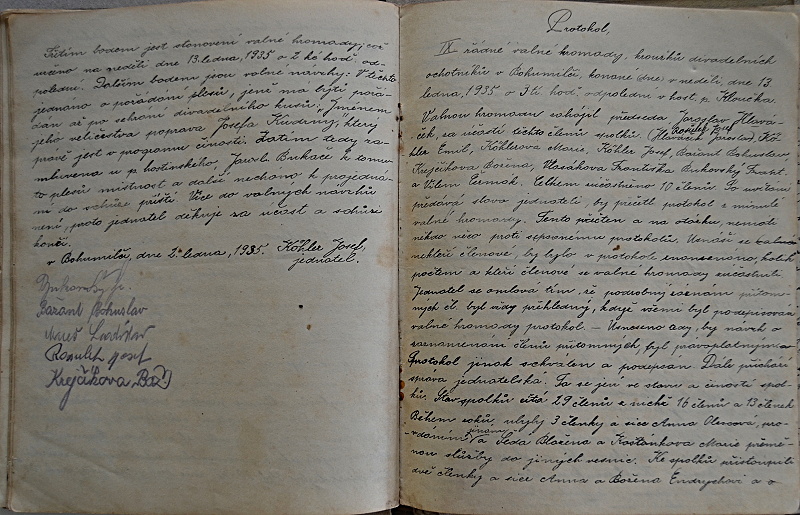 Třetím bodem jest stanovení valné hromady, což
určeno na neděli dne 13. ledna, 1935 o 2 hé hod. od-
polední. Dalším bodem jsou volné návrhy: V těchto
jednáno o pořádání plesů, jenž má býti pořá-
dán až po sehrání divadelního kusu: „Jménem
jeho veličenstva poprava Josefa Kudrny," který
právě jest v programu činosti. Zatím tedy za-
mluvena u p. hostinského, Jarosl. Bukače k tomu
to plesů místnost a další necháno k projedná-
ní do schůze příští. Více do volných návrhů
není, proto jednatel děkuje za účast a schůzi
končí.
v Bohumilči, dne 2. ledna, 1935. Köhler Josef,
jednatel.
Bukovský Fr.
Bažant Bohuslav
Mareš Ladislav
Josef
Krejčíkova Bož.
Protokol,
IX řádné valné hromady, kroužků divadelních
ochotníků v Bohumilči, konané dnes v neděli, dne 13.
ledna, 1935 o 3tí hod. odpolední v host. p. Kloučka.
Valnou hromadu zahájil předseda, Jaroslav Hlavá-
ček, za účasti těchto členů spolků. (Hlaváček Jaroslav), Kö-
Josef
hler Emil, Köhlerova Marie, Köhler Josef, Bažant Bohuslav,
Krejčíkova Božena, Vlasákova Františka Bukovský Frant.
a Vilém Čermák. Celkem súčastněno 10 členů. Po uvítání
předává slovo jednateli, by přečetl protokol z minulé
valné hromady. Tento přečten a na otázku, nemá-li
někdo něco proti sepsanému protokolů. Usnáší se
někteří členové, by bylo v protokole zaneseno, kolik
počtem a kteří členové se valné hromady súčastnili.
Jednatel se omlouvá tím, že podrobný seznam přítom-
ných čl. byl vždy přehledný, když všemi byl podepisován
valné hromady protokol. – Usneseno tedy, by návrh o
zaznamenání členů přítomných, byl právoplatným a
protokol jinak schválen a podepsán. Dále přichází
zpráva jednatelská. Ta se jeví ve stavu a činosti spol-
ků. Stav spolků čítá 29 členů z nichž 16 členů a 13 členek
Během roků, ubyly 3 členky a sice Anna, pro-
vdáním
a Leda Blažena a Košťánkova Marie přemě-
nou služby do jiných vesnic. Ke spolků přistoupili
dvě členky a sice Anna a Božena Endrychovi a o